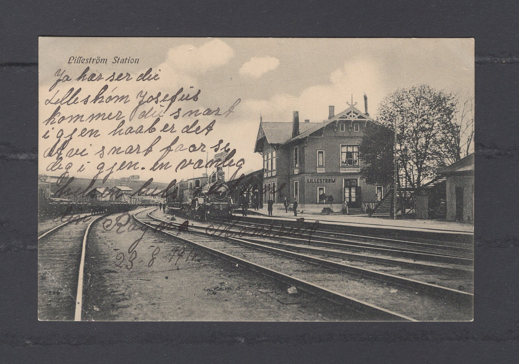 Lilleström Station
Ja har ser du
Lilleström Josefus
kommer du snart
i gjen haaber det
at vi snart faar se
dig i gjen. en venlig
23.8.19
LILLESTRØM